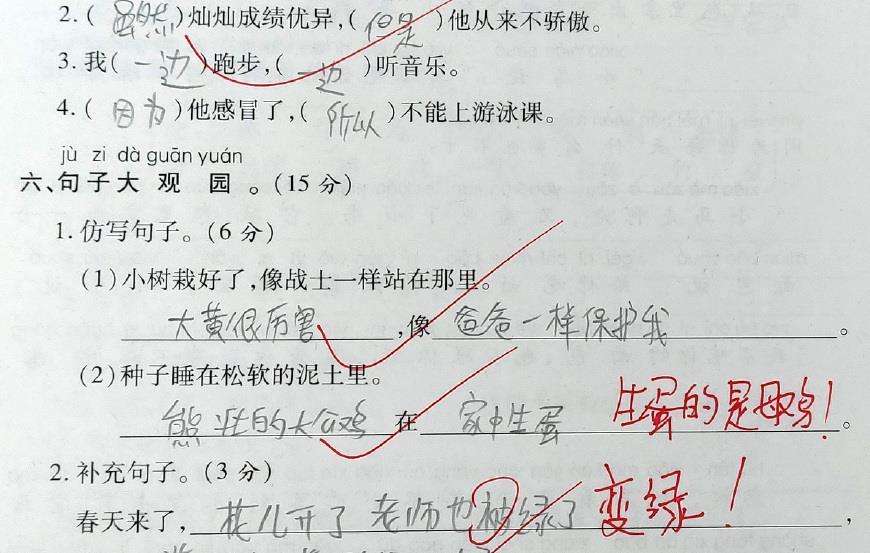 2.(虽然)灿灿成绩优异,(但是)他从来不骄傲。
3.我(一边)跑步,(一边)听音乐。
4.(因为)他感冒了,(所以)不能上游泳课。
jù zi dà guān yuán
六、句子大观园。(15分)
1.仿写句子。(6分)
(1)小树栽好了,像战士一样站在那里。
大黄很厉害,像爸爸一样保护我。
(2)种子睡在松软的泥土里。
熊壮的大公鸡在家中生蛋。生蛋的是母鸡!
2.补充句子。(3分)
春天来了,花儿开了 老师也被绿了,变绿!